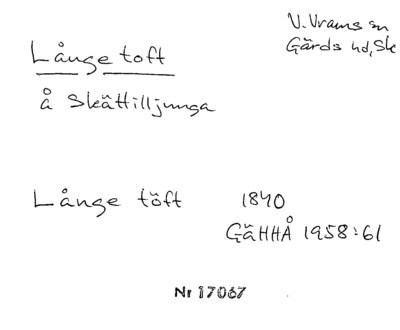 V. Vrams sn
Gärds hd, Sk
Långe toft
å Skättilljunga
Långe töft 1840
GäHHÅ 1958:61
Nr 17067